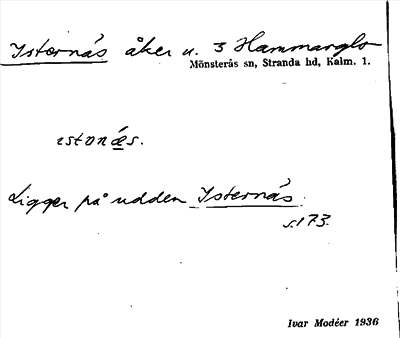 Isternäs åker u. 3 Hammarglo
Mönsterås sn, Stranda hd, Kalm. 1.
ıstonǽs.
Ligger på udden Isternäs.
s. 173.
Ivar Modéer 1936